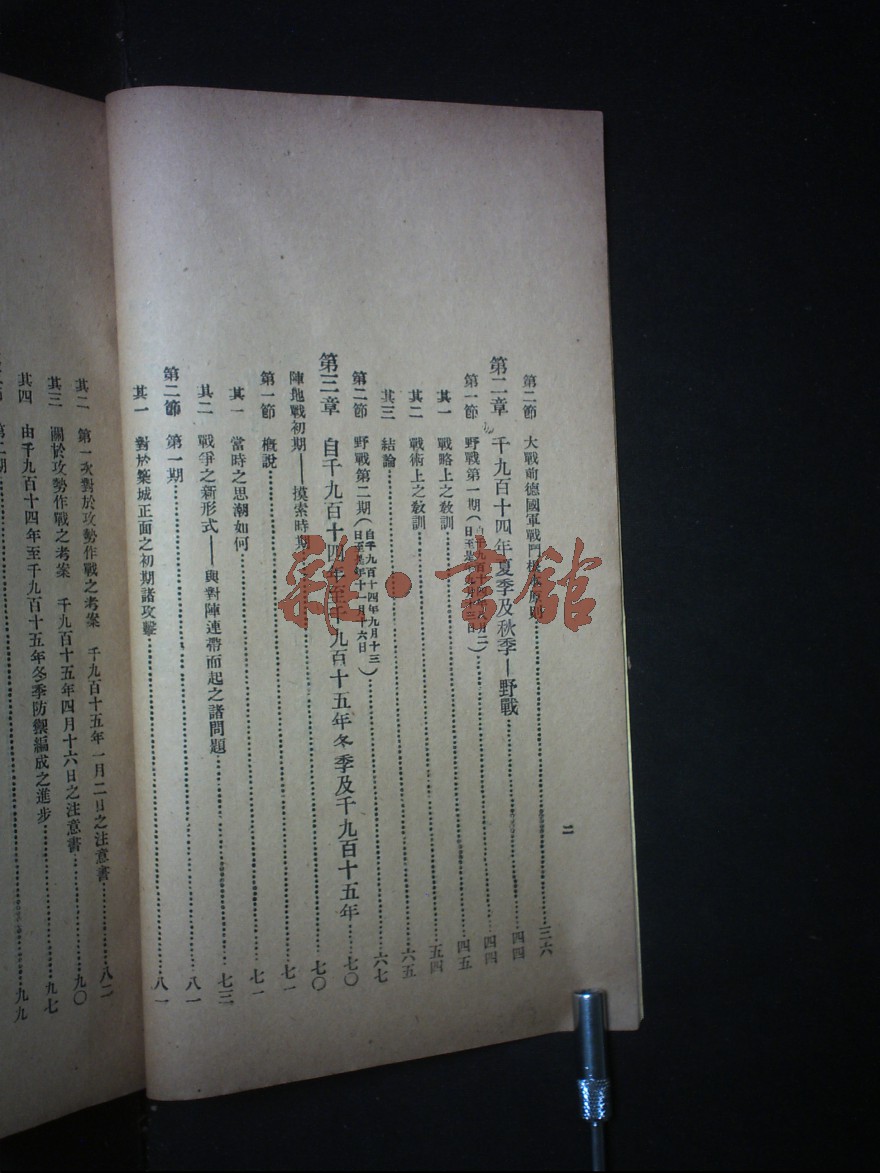 二
第二節 大戰前德國軍戰鬥根本原則 三六
第二章 千九百十四年夏季及秋季—野戰 四四
第一節 野戰第一期 四四
其一 戰略上之敎訓 四五
其二 戰術上之敎訓 五四
其三 結論 六五
第二節 野戰第二期(自千九百十四年九月十三日至是年十一月十六日) 六七
第三章 自千九百十四年至千九百十五年冬季及千九百十五年 七〇
陣地戰初期——摸索時期 七〇
第一節 概說 七一
其一 當時之思潮如何 七一
其二 戰爭之新形式——與對陣連帶而起之諸問題 七三
第二節 第一期 八一
其一 對於築城正面之初期諸攻擊 八一
其二 第一次對於攻勢作戰之考案 千九百十五年一月二日之注意書 八二
其三 關於攻勢作戰之考案 千九百十五年四月十六日之注意書 九〇
其四 由千九百十四年至千九百十五年冬季防禦編成之進步 九七
九九
雜·書館